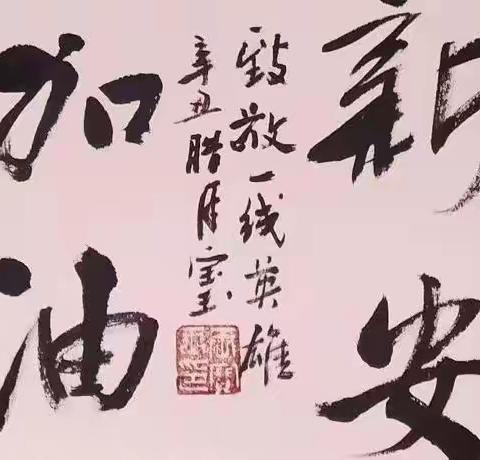 新安
致敬一线英雄
辛丑腊月宝玉
加油